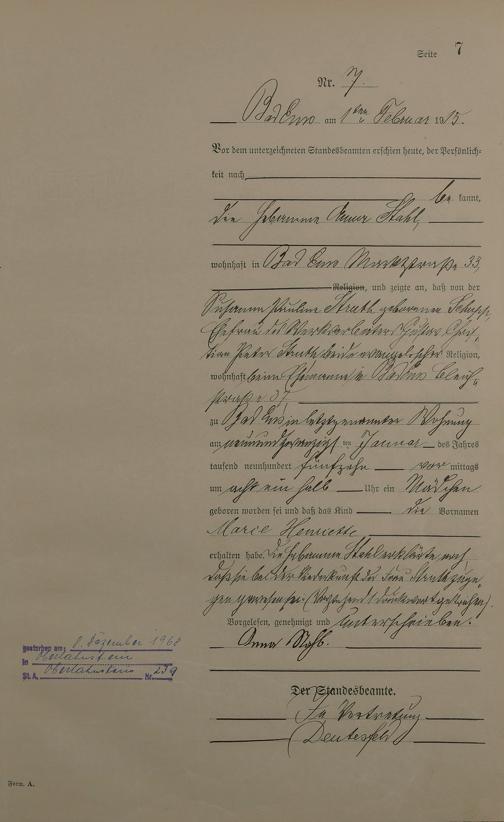 Seite 7
Nr. 7.
Bad Ems am 1ten Februar 1915.
Vor dem unterzeichneten Standesbeamten erschien heute, der Persönlich-
keit nach
be kannt,
die Hebamme Anna Stahl,
wohnhaft in Bad Ems Marktstraße 33,
Religion, und zeigte an, daß von der
Susanna Pauline Struth geborenen Schupp,
Ehefrau des Werksarbeiters Gustav Chris-
tian Peter Struth beide evangelischer Religion,
wohnhaft beim Ehemanne in Bad Ems Bleich-
straße 37
zu Bad Ems in letztgenannter Wohnung
am neunundzwanzigsten Januar des Jahres
tausend neunhundert fünfzehn vor mittags
um acht ein halb Uhr ein Mädchen
geboren worden sei und daß das Kind die Vornamen
Marie Henriette
erhalten habe. Die Hebamme Stahl erklärte noch
daß sie bei der Niederkunft der Frau Struth zuge-
gen gewesen sei. (Vorstehend Druckwort gestrichen).
Vorgelesen, genehmigt und unterschrieben.
Anna Stahl.
gestorben am: 8. Dezember 1968
in Oberlahnstein
Oberlahnstein
St. A. Nr. 239
Der Standesbeamte.
In Vertretung
Form. A.